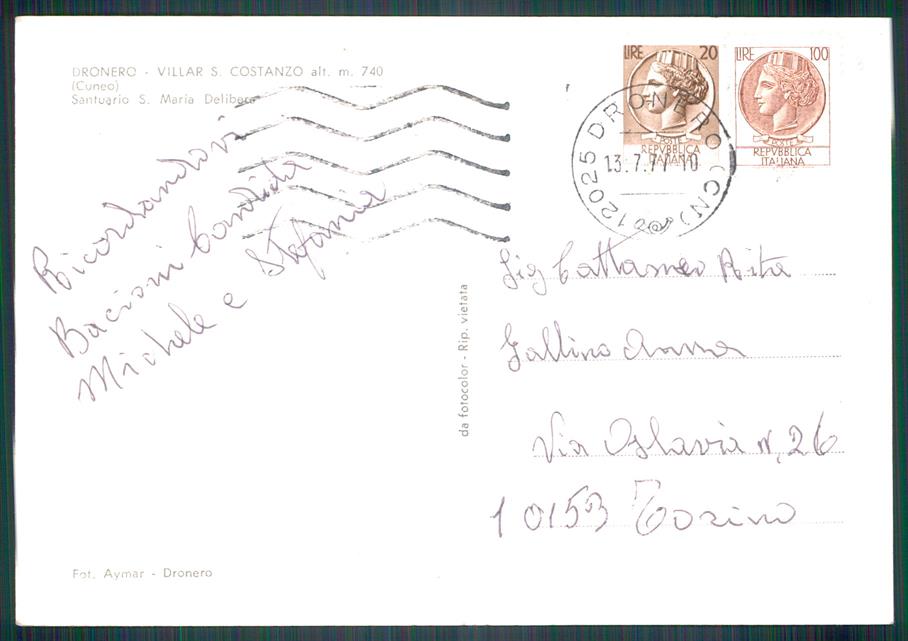 DRONERO - VILLAR S. COSTANZO alt. m. 740
(Cuneo)
Santuario S. Maria Delibera
Ricordandovi
Bacioni Candida
Michele e Stefania
Fot. Aymar - Dronero
da fotocolor - Rip. vietata
LIRE 20
POSTE
REPVBBLICA
ITALIANA
LIRE 100
POSTE
REPVBBLICA
ITALIANA
12025 DRONERO (CN)
13.7.77-10
Sig Cattaneo Rita
Gallino Anna
Via Oslavia N, 26
10153 Torino